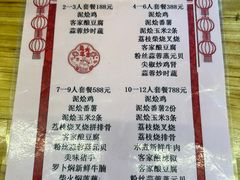 2—3人套餐188元
泥焗鸡
客家酿豆腐
蒜蓉炒时蔬
4—6人套餐388元
泥焗鸡
泥焗番薯
泥焗玉米2条
荔枝柴叉烧
客家酿豆腐
粉丝蒜蓉蒸元贝
尖椒炒鸡肾
时蔬
7—9人套餐588元
泥焗鸡
泥焗番薯
泥焗玉米2条
荔枝柴叉烧拼排骨
客家酿豆腐
粉丝蒜蓉蒸元贝
美味猪手
萝卜焖新鲜牛腩
10—12人套餐788元
泥焗鸡
泥焗番薯2份
泥焗玉米3条
荔枝柴叉烧
荔枝柴排骨
水煮新鲜牛肉
客家酿豆腐
粉丝蒜蓉蒸元贝